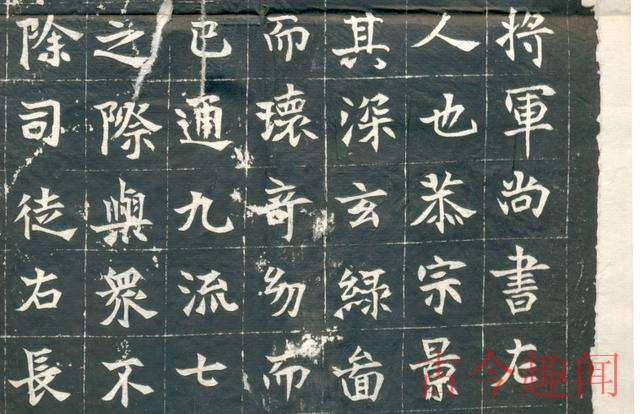 將軍尚書
人也恭宗景
其深玄綠啚
而瓌奇幼而
已通九流七
之際與眾不
除司徒右長
古今趣闻